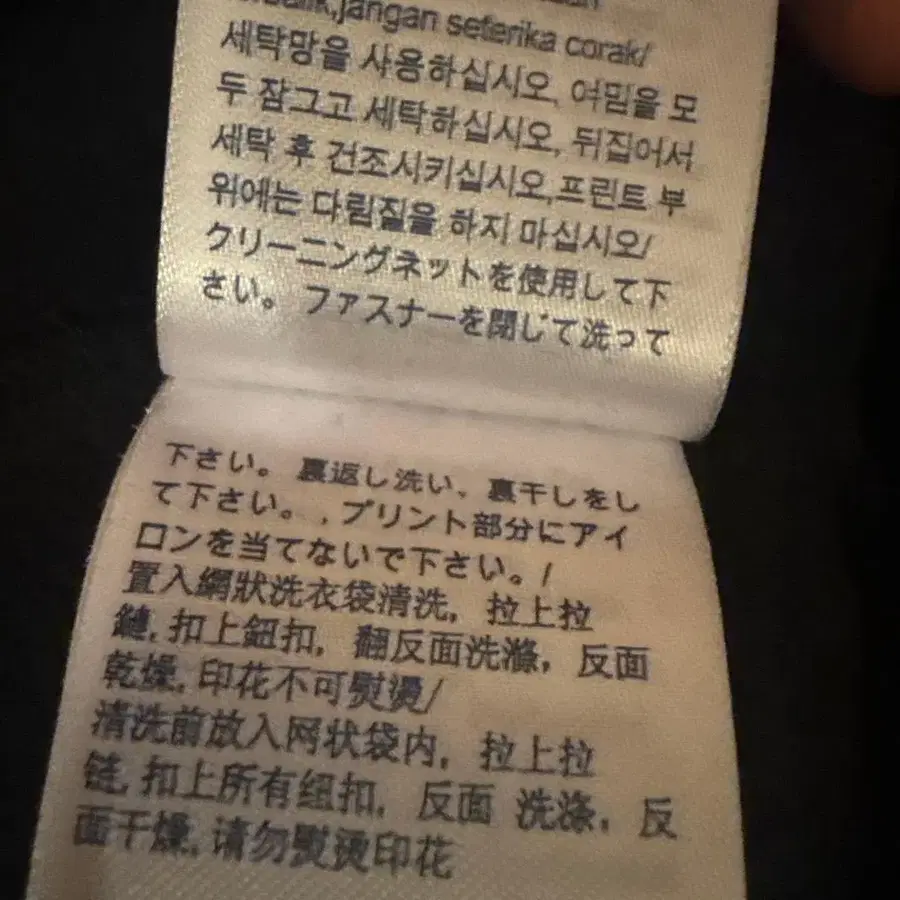 jangan seterika corak/
세탁망을 사용하십시오, 여밈을 모
두 잠그고 세탁하십시오, 뒤집어서
세탁 후 건조시키십시오,프린트 부
위에는 다림질을 하지 마십시오/
クリーニングネットを使用して下
さい。 ファスナーを閉じて洗って
下さい。 裏返し洗い、裏干しをし
て下さい。,プリント部分にアイ
ロンを当てないで下さい。/
置入網狀洗衣袋清洗, 拉上拉
鏈,扣上鈕扣, 翻反面洗滌, 反面
乾燥,印花不可熨燙/
清洗前放入网状袋内, 拉上拉
链,扣上所有纽扣, 反面 洗涤, 反
面干燥,请勿熨烫印花